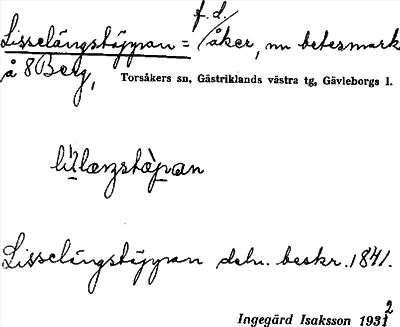 f.d./
Lisselängstäppan = åker, nu betesmark
å 8 Berg,
Torsåkers sn, Gästriklands västra tg, Gävleborgs l.
Lisselängstäppan deln. beskr. 1841.
Ingegärd Isaksson 1932